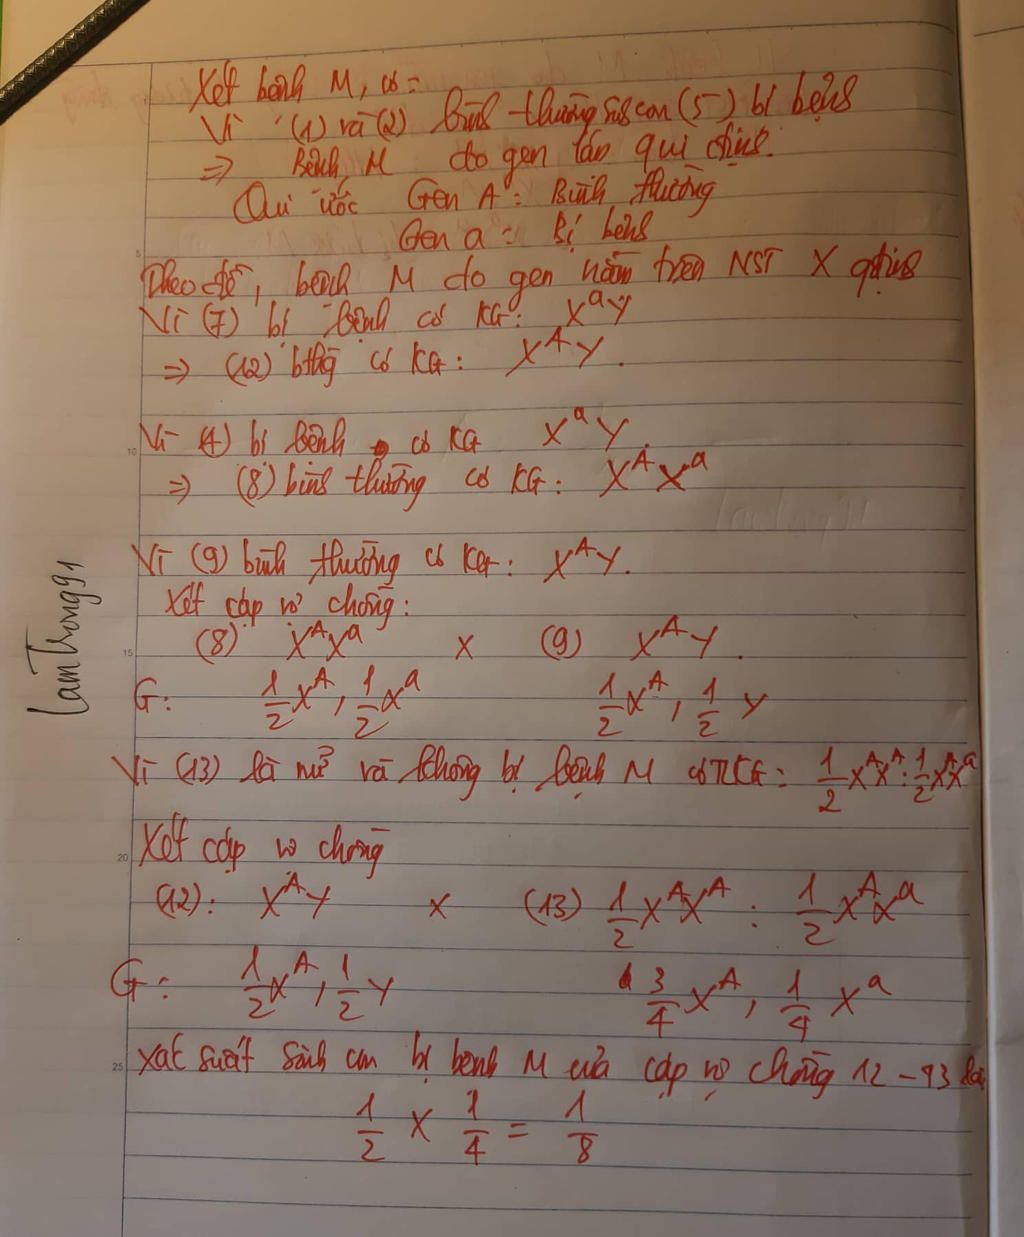 Xét bệnh M, có:
Vì (1) và (2) bình thường sinh con (5) bị bệnh
⇒ Bệnh M do gen lặn qui định.
Qui ước Gen A: Bình thường
Gen a: Bị bệnh
Theo đề, bệnh M do gen nằm trên NST X qđịnh
Vì (7) bị bệnh có KG: XᵃY
⇒ (12) bthg có KG: XᴬY.
Vì (4) bị bệnh có KG XᵃY.
⇒ (8) bình thường có KG: XᴬXᵃ
Vì (9) bình thường có KG: XᴬY.
Xét cặp vợ chồng:
(8) XᴬXᵃ x (9) XᴬY.
G: 1/2 Xᴬ, 1/2 Xᵃ 1/2 Xᴬ, 1/2 Y
Vì (13) là nữ và không bị bệnh M có TLKG: 1/2 XᴬXᴬ : 1/2 XᴬXᵃ
Xét cặp vợ chồng
(12): XᴬY x (13) 1/2 XᴬXᴬ : 1/2 XᴬXᵃ
G: 1/2 Xᴬ, 1/2 Y 3/4 Xᴬ, 1/4 Xᵃ
Xác suất sinh con bị bệnh M của cặp vợ chồng 12 - 13 là
1/2 x 1/4 = 1/8
LamTrong91
5
10
15
20
25